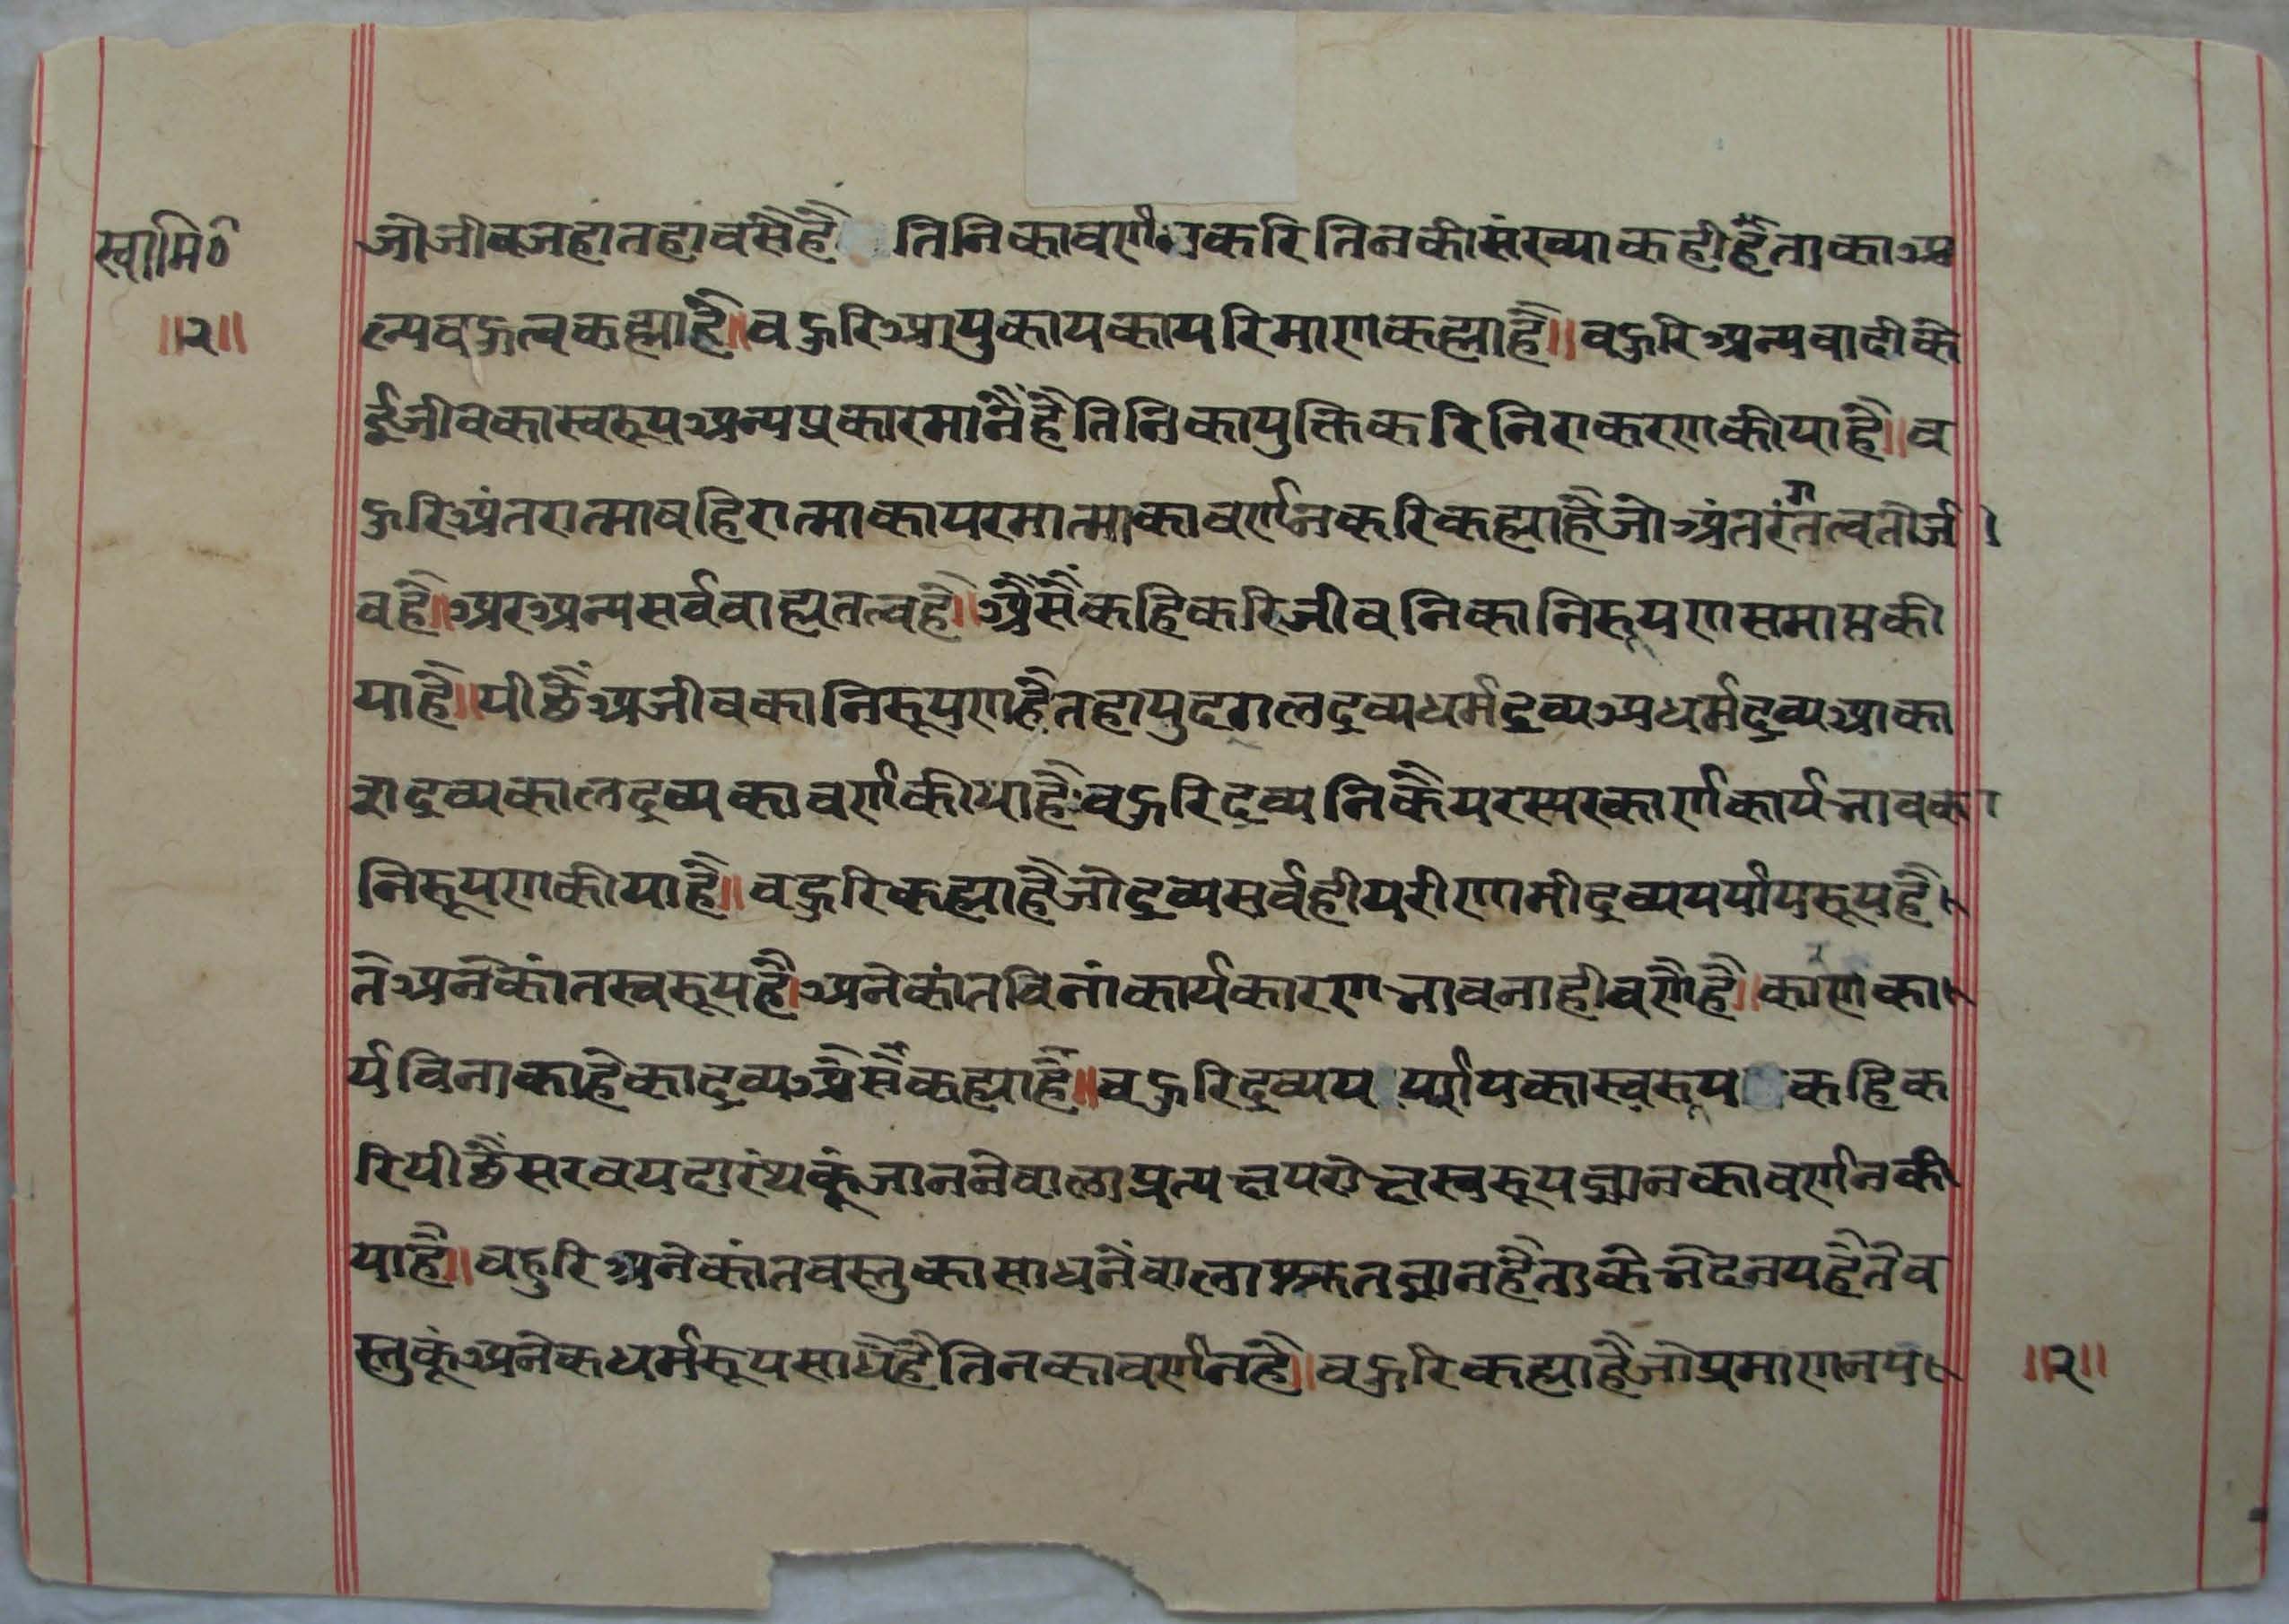 स्वामि०
॥२॥
जो जीव जहा तहा वसै है तिनिका वर्णन करि तिनकी संख्या कही है ताका अ
ल्पवहुत्व कह्या है॥ वहुरि आयु काय का परिमाण कह्या है॥ वहुरि अन्यवादी के
ई जीवका स्वरूप अन्य प्रकार मानैं है तिनिका युक्ति करि निराकरण कीया है॥ व
हुरि अंतरात्मा वहिरात्मा का परमात्मा का वर्णन करि कह्या है जो अंतरंग तत्व तो जी
व है॥ अर अन्य सर्व वाह्य तत्व है॥ अैसैं कहि करि जीवनिका निरूपण समाप्त की
या है॥ पीछैं अजीव का निरूपण है तहा पुदगलद्रव्य धर्मद्रव्य अधर्मद्रव्य आका
शद्रव्य कालद्रव्य का वर्ण कीया है वहुरि द्रव्यनिकै परस्पर कार्ण कार्य भाव का
निरूपण कीया है॥ वहुरि कह्या है जो द्रव्य सर्व ही परीणामी द्रव्य पर्याय रूप है
ते अनेकांत स्वरूप है। अनेकांत विनां कार्य कारण भाव नाही वणै है॥ कारण का
र्य विना काहे का द्रव्य अैसैं कह्या है॥ वहुरि द्रव्य पर्याय का स्वरूप कहि क
रि पीछैं सरव पदारंथ कूं जाननेवाला प्रत्यक्ष परोक्ष स्वरूप ज्ञान का वर्णन की
या है॥ वहुरि अनेकांत वस्तु का साधनेंवाला श्रुतज्ञान है ताके भेद नय है ते व
स्तु कूं अनेक धर्म रूप साधै है तिनका वर्णन है॥ वहुरि कह्या है जो प्रमाण नय
॥२॥